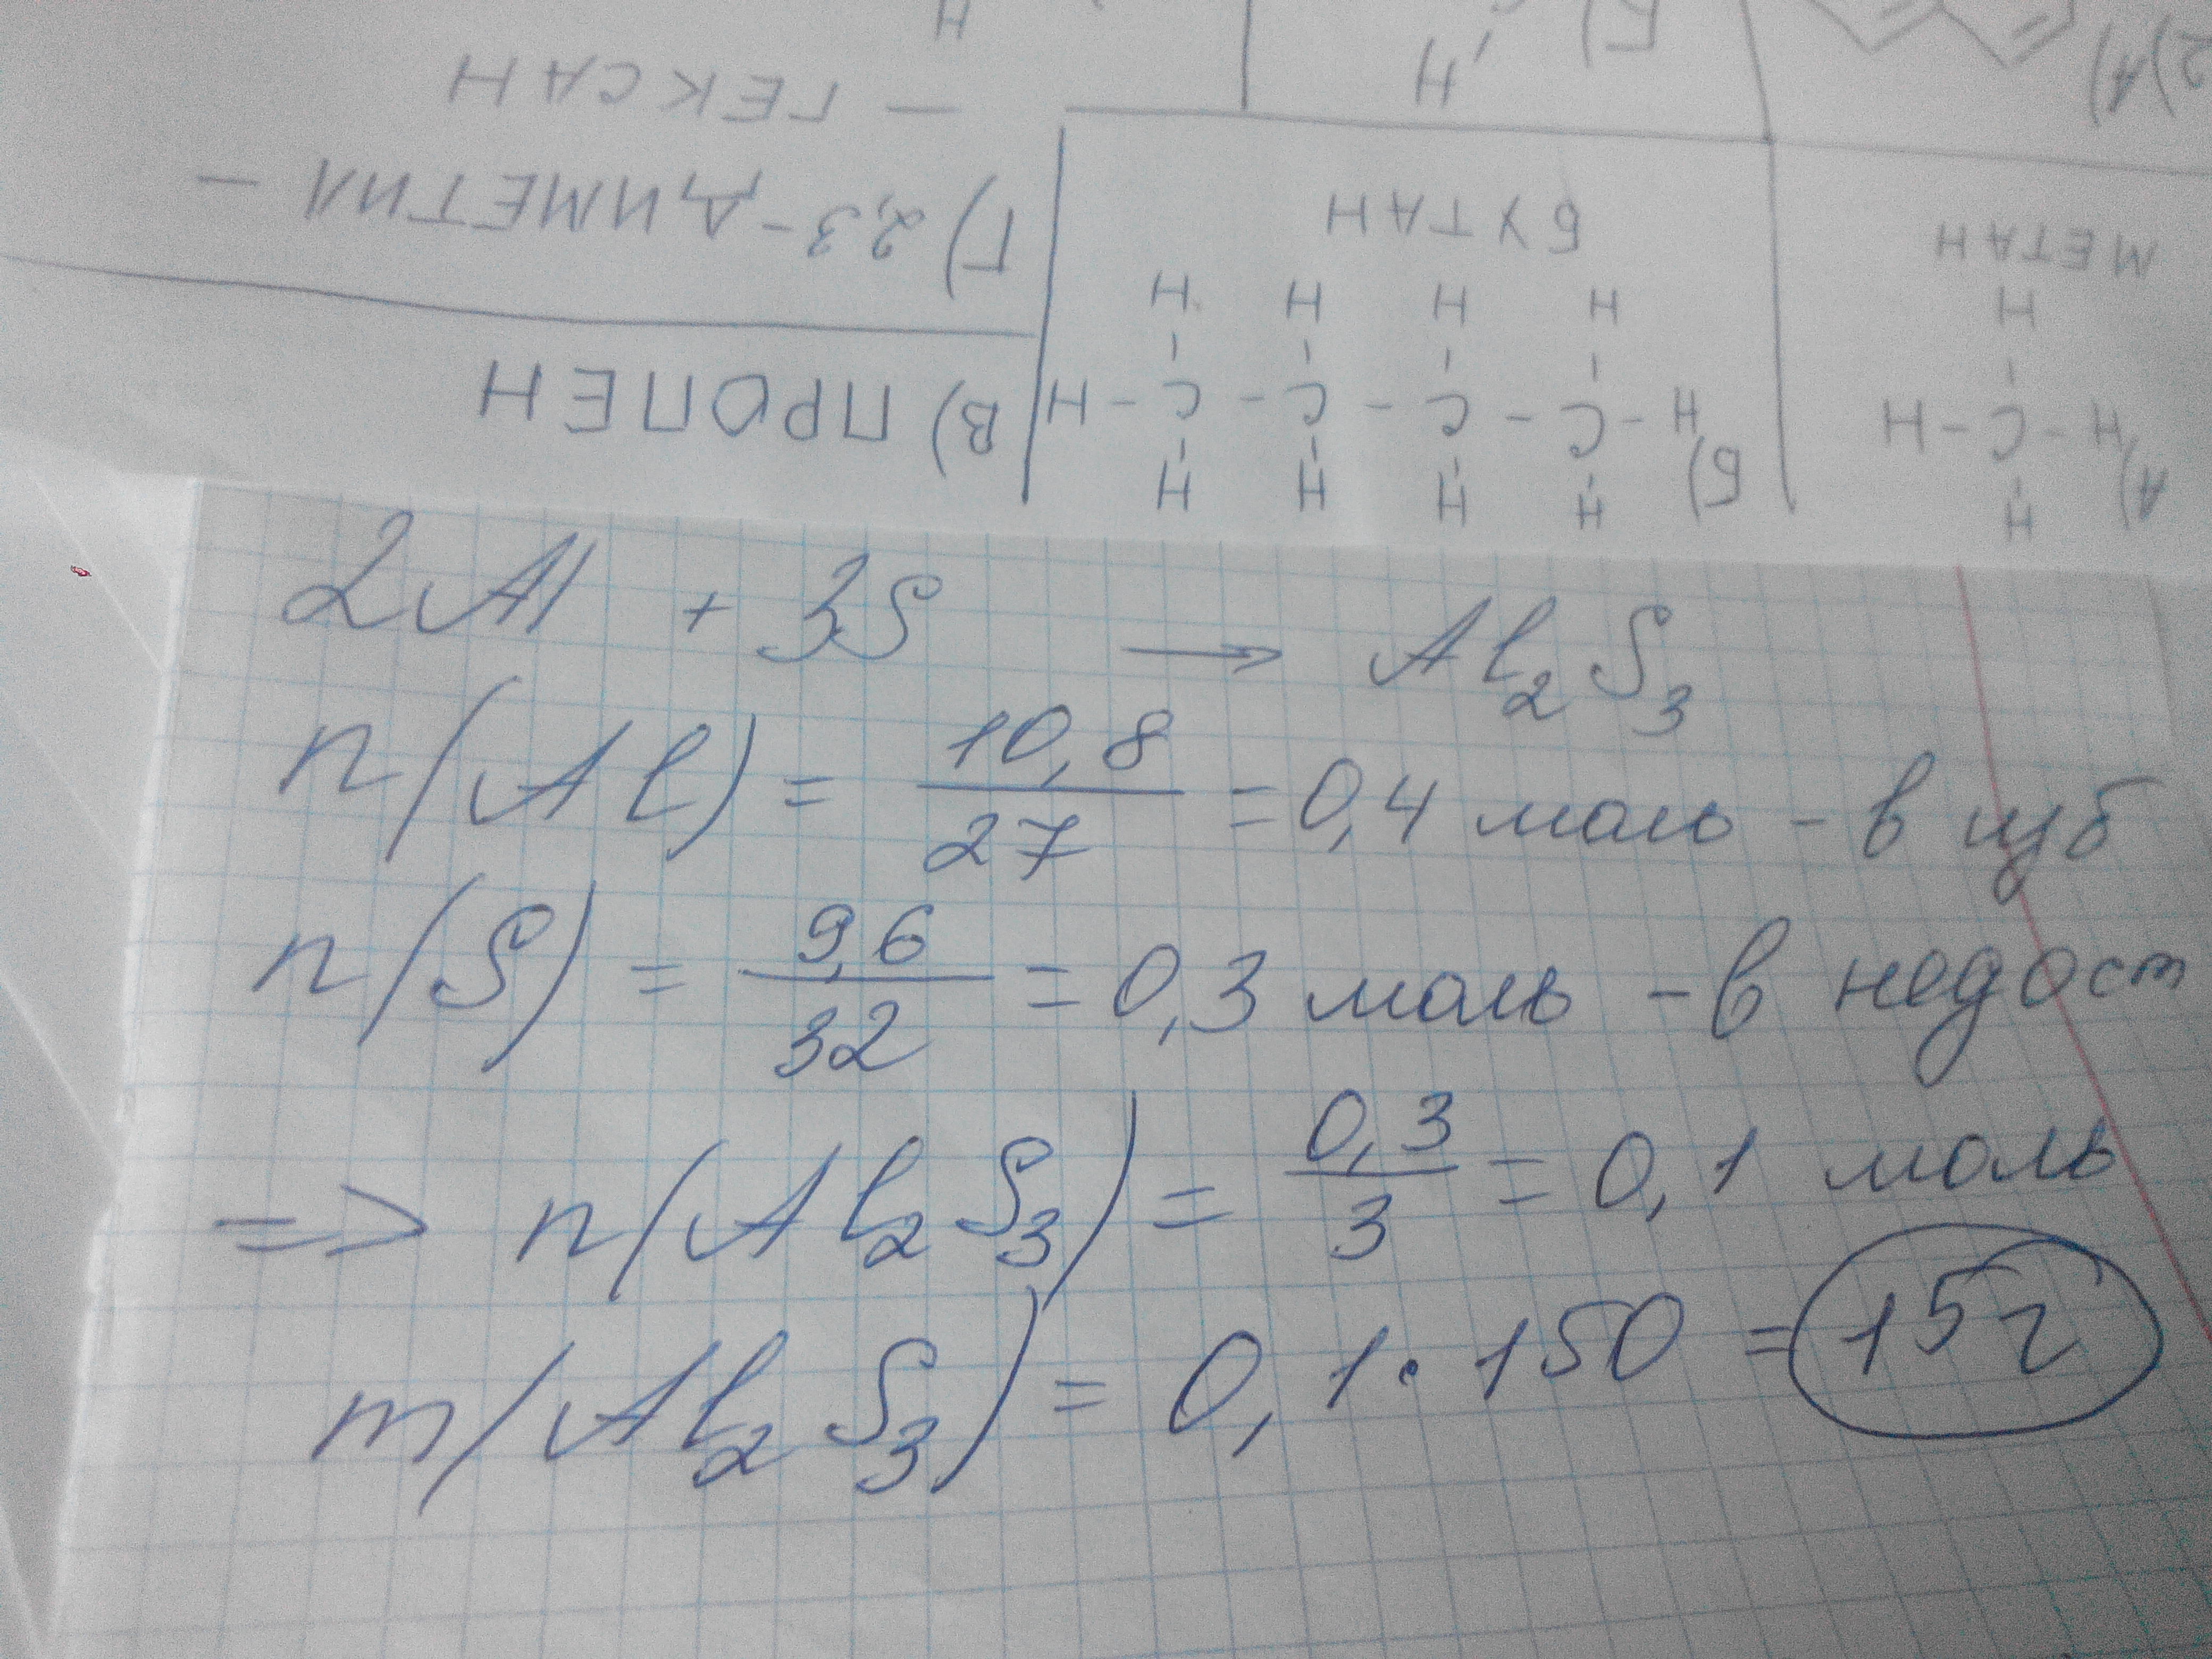 2Al + 3S → Al₂S₃
n(Al) = 10,8/27 = 0,4 моль - в изб
n(S) = 9,6/32 = 0,3 моль - в недост
=> n(Al₂S₃) = 0,3/3 = 0,1 моль
m(Al₂S₃) = 0,1 · 150 = 15г
А) H
H - C - H
H
МЕТАН
Б) H H H H
H - C - C - C - C - H
H H H H
БУТАН
В) ПРОПЕН
Г) 2,3 - ДИМЕТИЛ -
- ГЕКСАН
2) А)
Г)
H
H